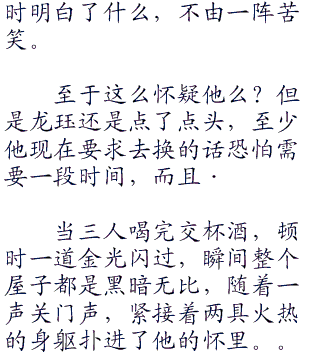 时明白了什么，不由一阵苦
笑。
至于这么怀疑他么？但
是龙珏还是点了点头，至少
他现在要求去换的话恐怕需
要一段时间，而且·
当三人喝完交杯酒，顿
时一道金光闪过，瞬间整个
屋子都是黑暗无比，随着一
声关门声，紧接着两具火热
的身躯扑进了他的怀里。。